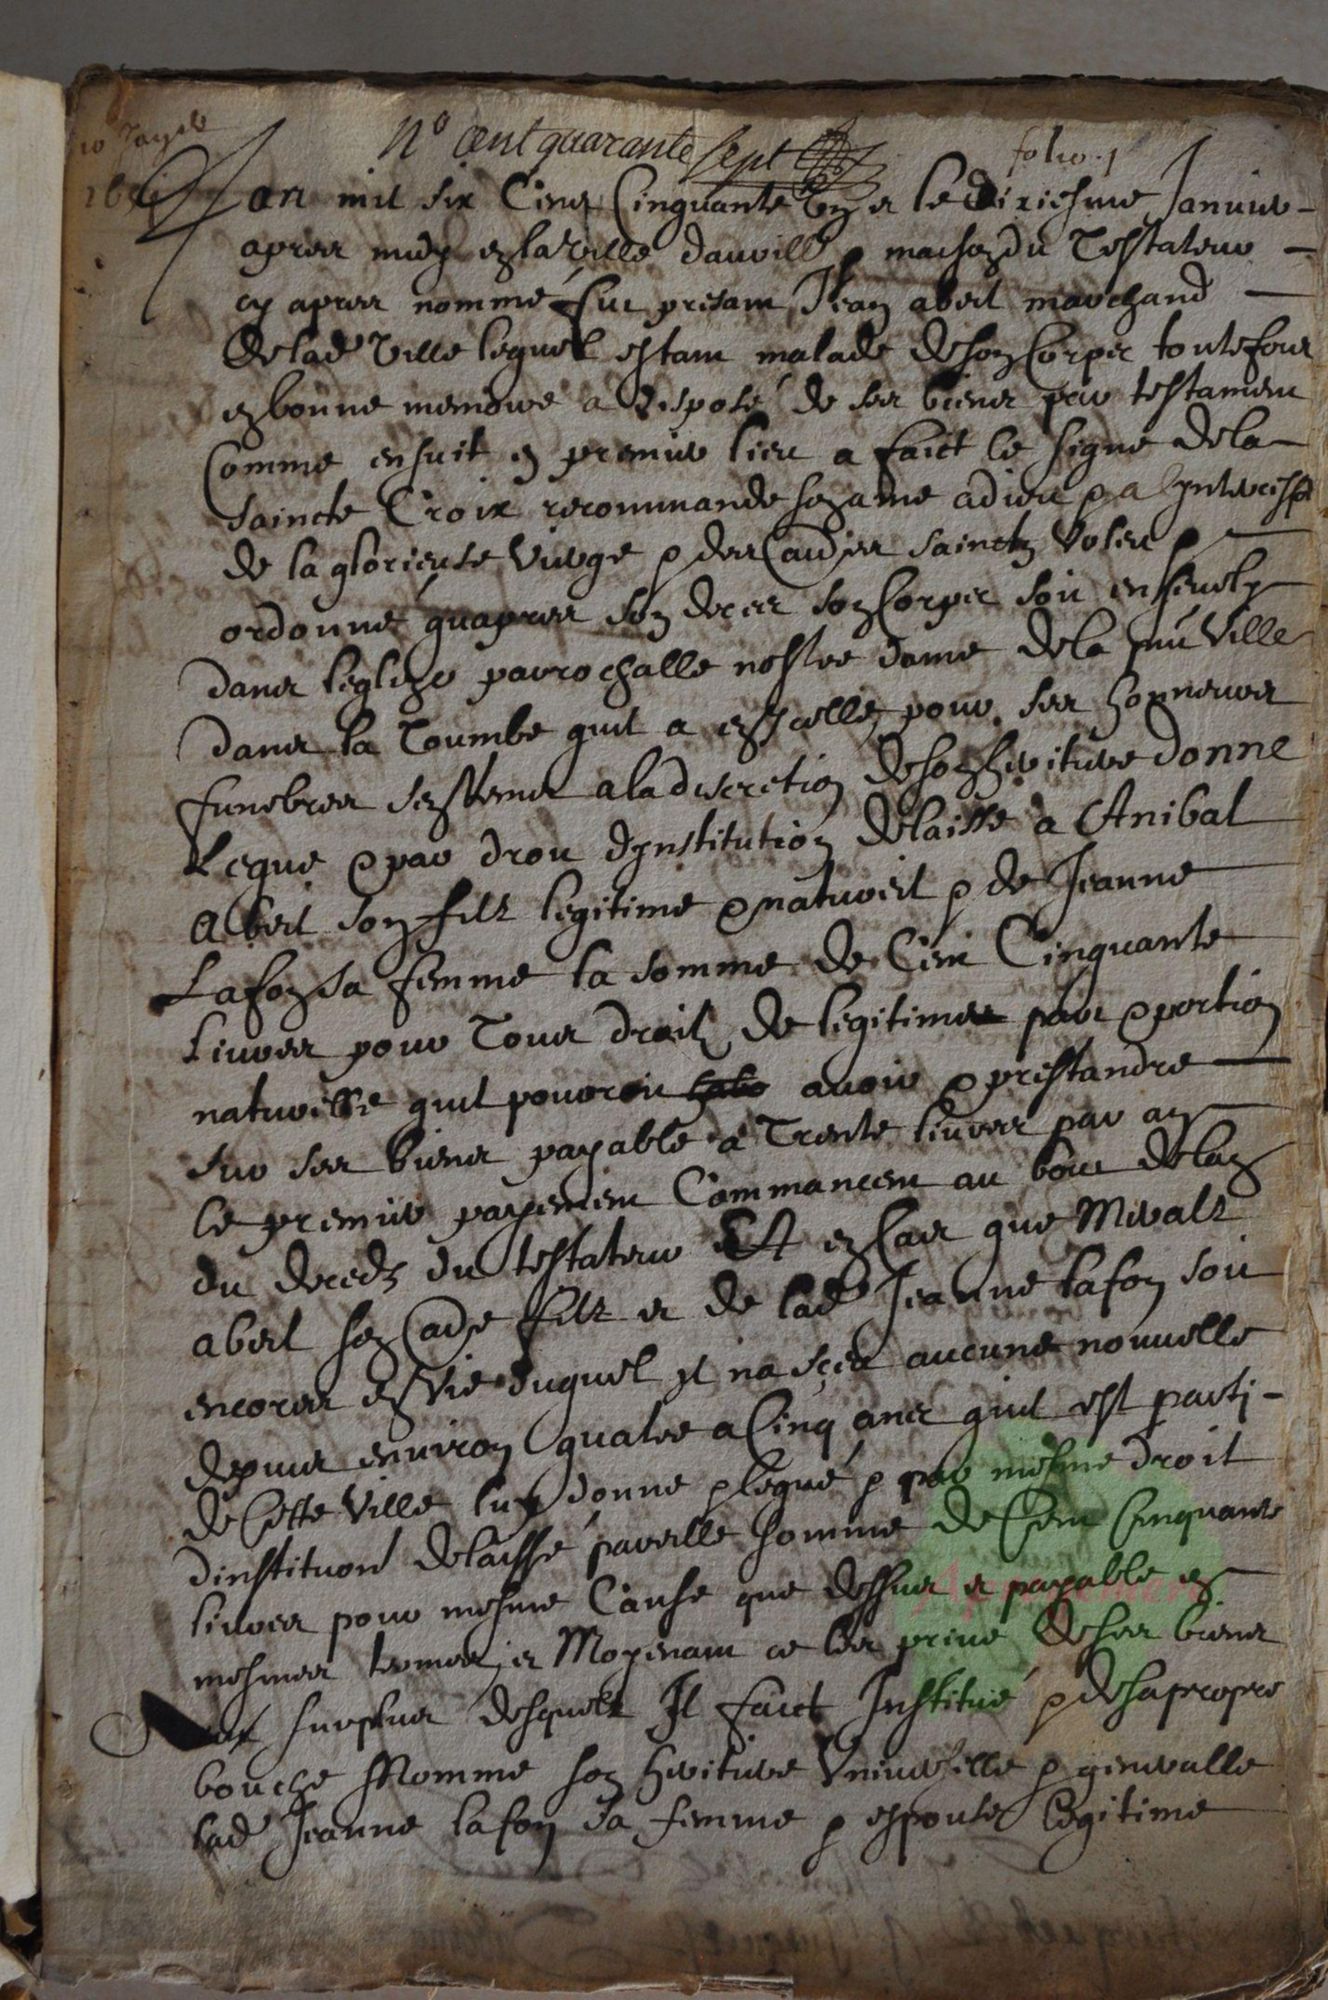 10 Janv
1651
N° cent quarante sept
folio 1
Lan mil six Cens Cinquante Un et le dixiesme Janvier
apres midy en la Ville dauvill & maison du Testateur
cy apres nommé fut presant Jean abert marchand
de lad Ville lequel estant malade de son Corps toutefois
en bonne memoire a disposé de ses biens par testament
Comme ensuit en premier lieu a faict le signe de la
saincte Croix recommande son ame a dieu & a Lyntercession
de la glorieuse Vierge & des saincts
ordonne quapres son deces son Corps soit ensevely
dans leglize parrochalle nostre dame de la Ville
dans la Toumbe quil a en Icelle pour ses honneurs
funebres sen remet a la discretion de son heritiere donne
Legue & par droit dynstitution delaisse a Anibal
Abert son filz legitime & naturel & de Jeanne
Lafon sa femme la somme de Cent Cinquante
Livres pour Tous droitz de legitime part & portion
naturelle quil pourroit avoir & prestandre
sur ses biens payable a Trente livres par an
le premier payement Commancent au bout de lan
du decedz du testateur Et en Cas que
abert son filz et de lad Jeanne lafon soit
encores en Vie duquel yl na sceu aucune nouvelle
depuis environ quatre a Cinq ans quil est parti
de Cette Ville luy donne & legue & par mesme droit
dinstituon delaisse pareille somme de Cent Cinquante
livres pour mesme Cause que dessus et payable es
mesmes termes et Moyenant ce les prive de ses biens
surplus desquelz Il faict Institué & de sa propre
bouche Nomme son heritiere Universelle & generalle
lad Jeanne lafon sa femme & espouse legitime